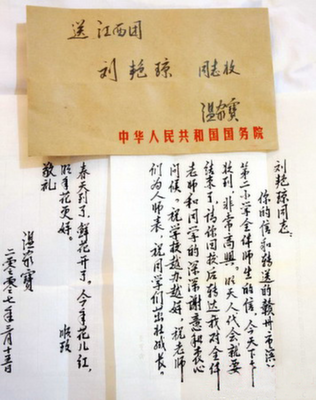 送 江西团
刘艳琼 同志收
温家宝
中华人民共和国国务院
刘艳琼同志：
你的信和转送的赣州市滨
第二小学全体师生的信，今天下午
收到，非常高興。明天人代会就要
结束了，请你回校后转达我对全体
老师和同学的深深谢意和衷心
问候。祝学校越办越好，祝老师
们为人师表，祝同学们茁壮成长。
春天到了，鲜花开了。今年花儿红，
明年花更好。 顺致
敬礼
温家宝
二零零七年三月十五日